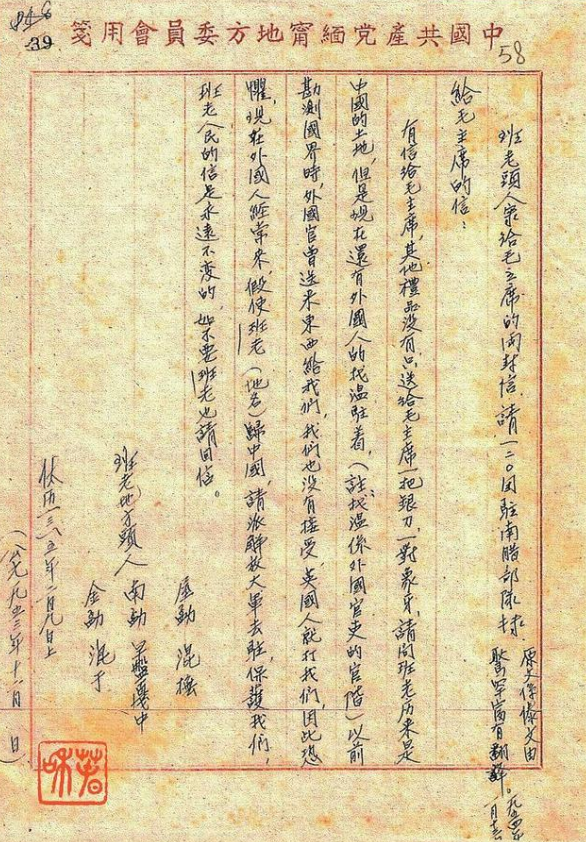 中國共產党緬甯地方委員會用箋
39
58
班老頭人寄給毛主席的兩封信請一二〇团駐南腊部隊
原文係傣文由
翻譯。
給毛主席的信：
有信給毛主席，其他禮品没有只送給毛主席一把銀刀，一對象牙，請問班老历来是
中國的土地，但是現在還有外國人的找温駐着，（註找温係外國官吏的官階）以前
勘测國界時，外國官曾送来東西給我們，我們也没有接受，英國人就打我們，因此恐
懼，現在外國人經常来，假使班老（地名）歸中國，請派解放大軍去駐，保護我們，
班老人民的信是永遠不变的，如不要班老也請回信。
屋勐 混
班老地方頭人 南勐
金勐 混
一三一五年一月九日上
（公元一九五三年十一月 日）